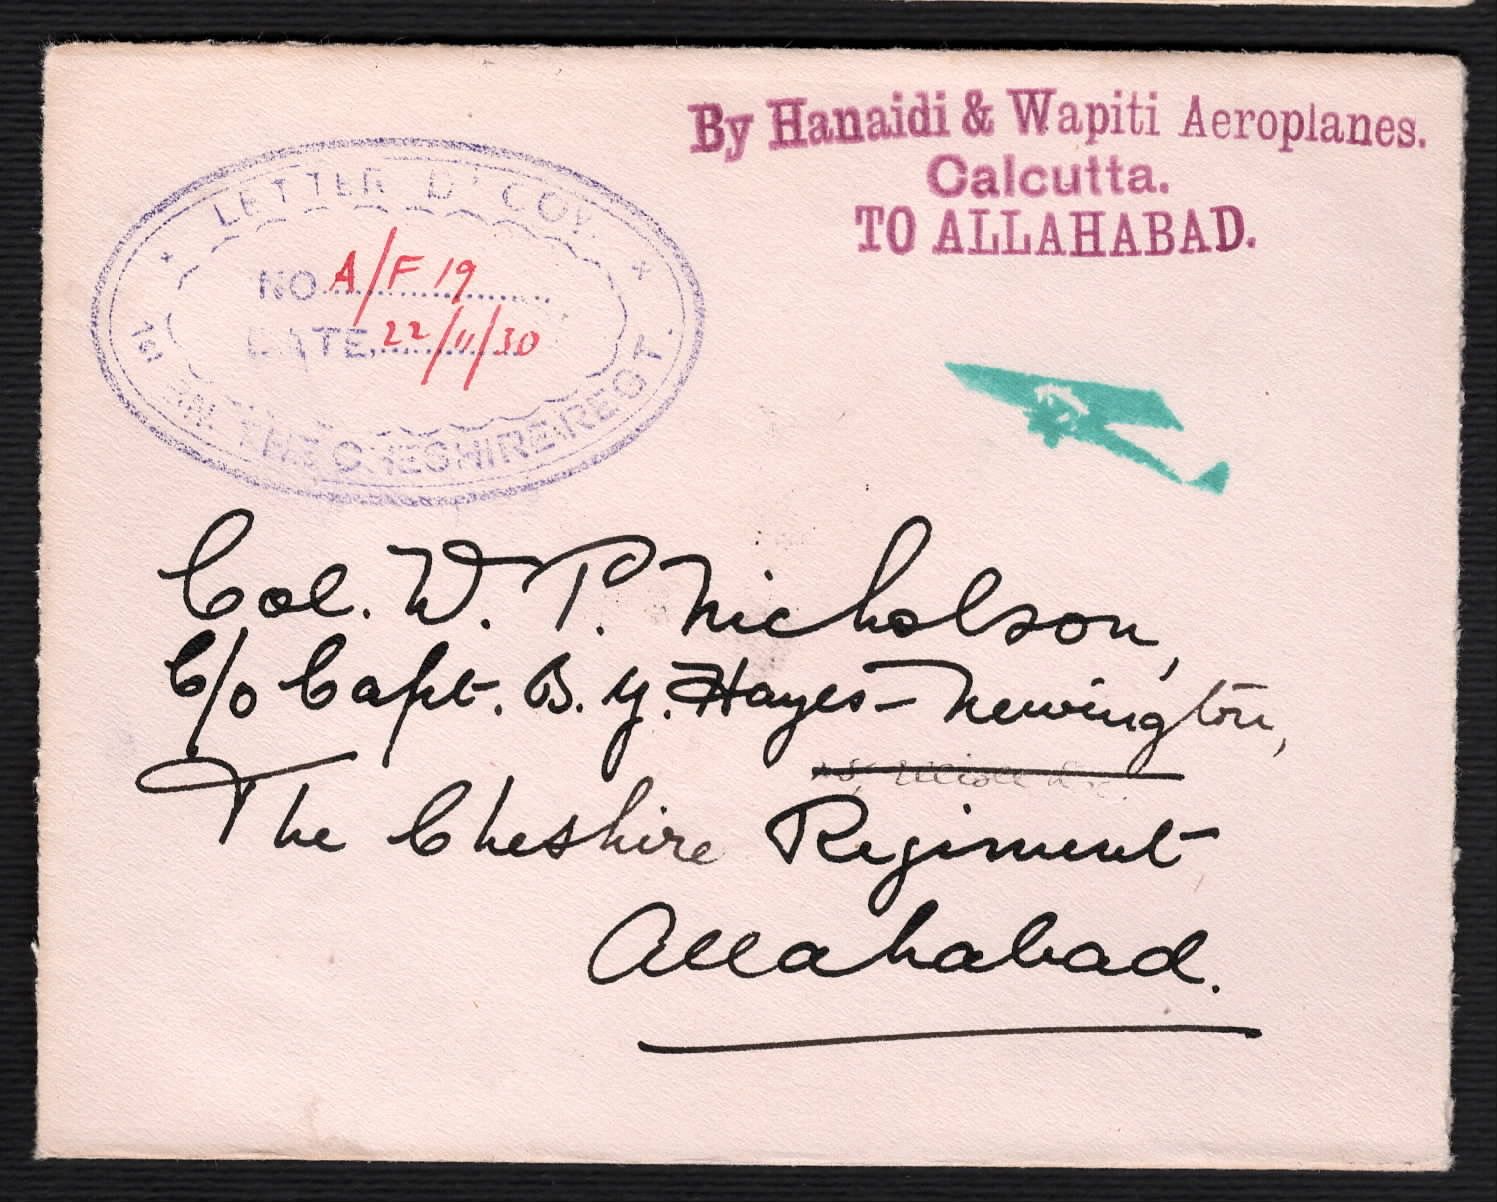 By Hanaidi & Wapiti Aeroplanes.
Calcutta.
TO ALLAHABAD.
LETTER "D" COY.
NO. A/F 19
DATE. 22/11/30
1st BN. THE CHESHIRE REGT.
Col. W. P. Nicholson,
C/o Capt. B. Y. Hayes-Newington,
The Cheshire Regiment
Allahabad.